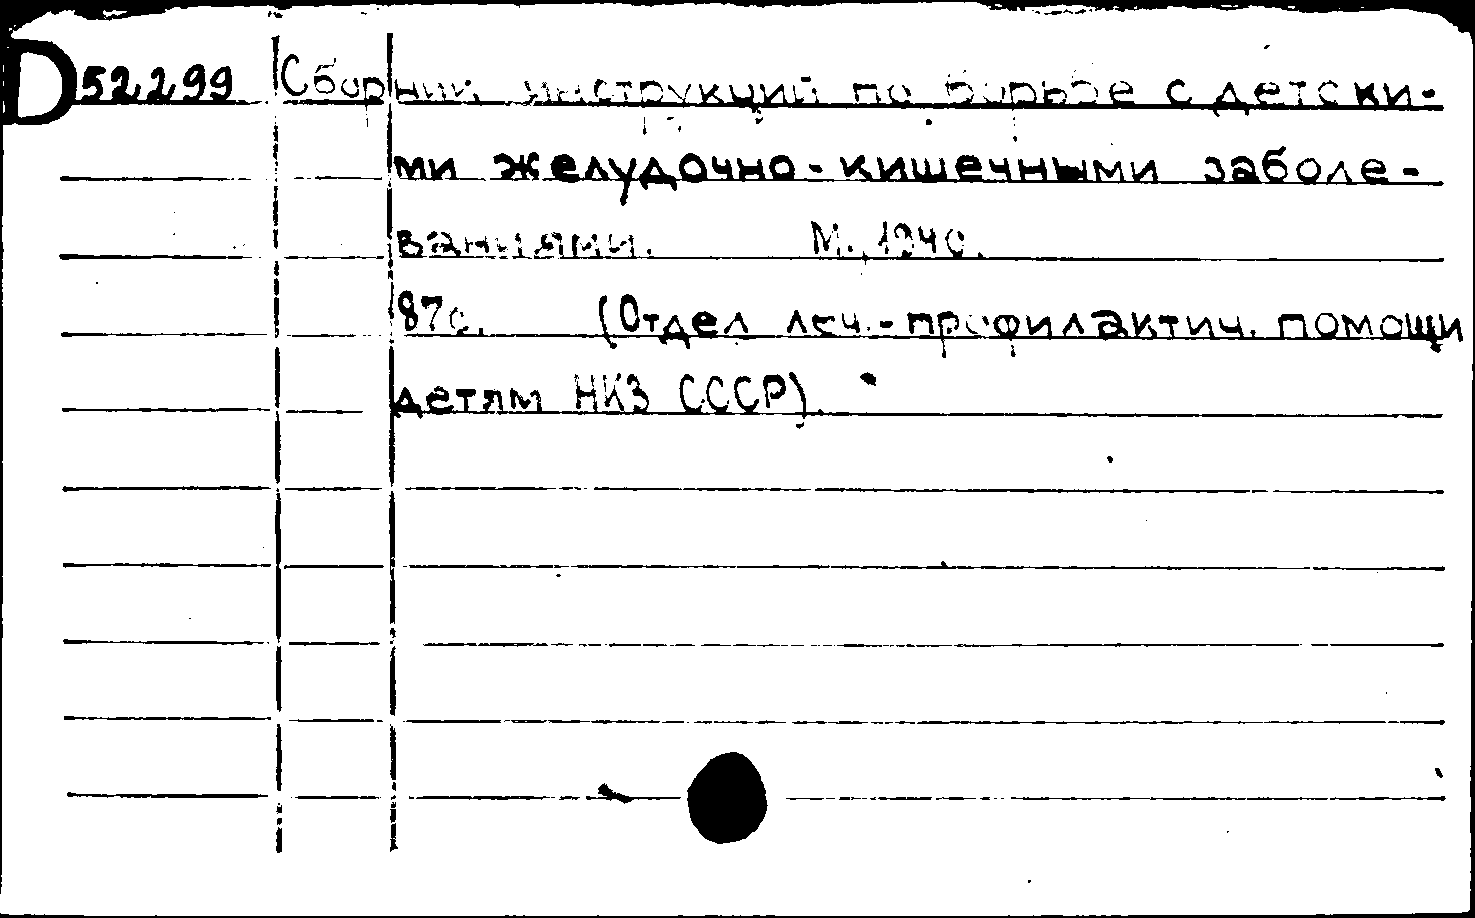 D 52.2.99 Сборник инструкций по борьбе с детски-
ми желудочно-кишечными заболе-
ваниями. М., 1940.
87с. (Отдел леч.-профилактич. помощи
детям НКЗ СССР).